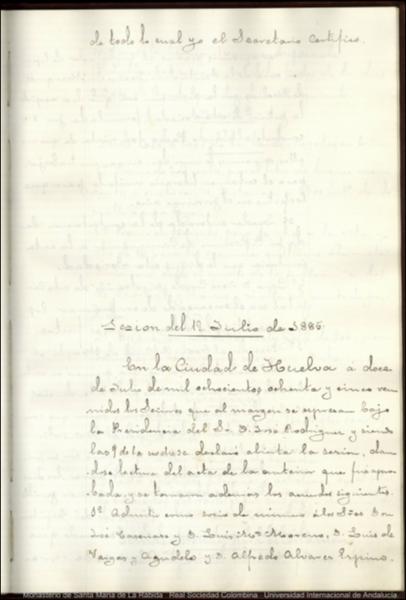 de todo lo cual yo el Secretario certifico.
Sesion del 12 Julio de 1885
En la Ciudad de Huelva á doce
de Julio de mil ochocientos ochenta y cinco reu
nidos los Señores que al margen se expresan bajo
la Presidencia del Sr. D. José Rodriguez y siendo
las 9 de la noche se declaró abierta la sesion, dan
dose lectura del acta de la anterior que fué apro
bada, y se tomaron además los acuerdos siguientes.
1º Admitir como socios de número á los Sres Don
José y D. Luis Mª Moreno, D. Luis de
Vargas y Agudelo y D. Alfredo Alvarez Espino.
Monasterio de Santa María de La Rábida . Real Sociedad Colombina . Universidad Internacional de Andalucía